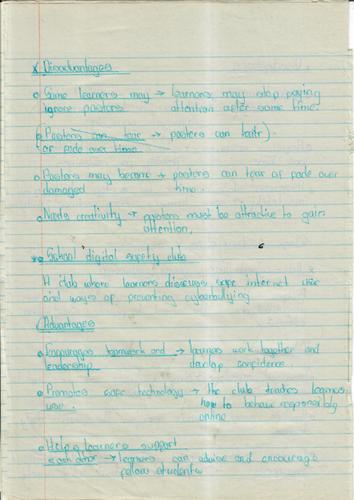 x Disadvantages
o Some learners may → learners may stop paying
ignore posters attention after some time.
(Posters can tear → posters can tear)
or fade over time
o Posters may become → posters can tear or fade over
damaged time.
o Needs creativity → posters must be attractive to gain
attention.
School digital safety club
A club where learners discuss safe internet use
and ways of preventing cyberbullying
(Advantages
o Encourages teamwork and → learners work together and
leadership develop confidence
o Promotes safe technology → the club teaches learners
use. how to behave responsibly
online
o Helps learners support
each other → learners can advise and encourage
fellow students